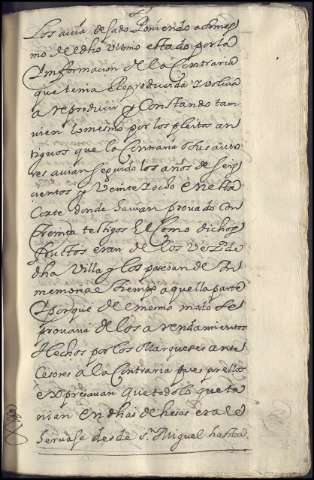 Los avia dejado Poniendo a demas
mo de dho ultimo estado por la
Informacion de la Contraria
que tenia Reproducida y volvia
a reproduzir y Constando tam
uien lo mismo por los pleitos an
tiguos que la Contraria y sus auto
res auian seguido los años de seis
cientos y veinte y ocho en esta
Corte donde hauian prouado con
treinta testigos Como dichos
fruttos eran de los Vezos de
dha Villa y los poseian de In
memorial tiempo a aquella parte
Y porque de el mismo modo se
prouaua de los arrendamientos
Hechos por los Marqueses ante
Cesores a la Contraria pues por ellos
expresauan que todo lo que ta
nian en dhas dehesas era lo
Seruase desde Sn Miguel hasta